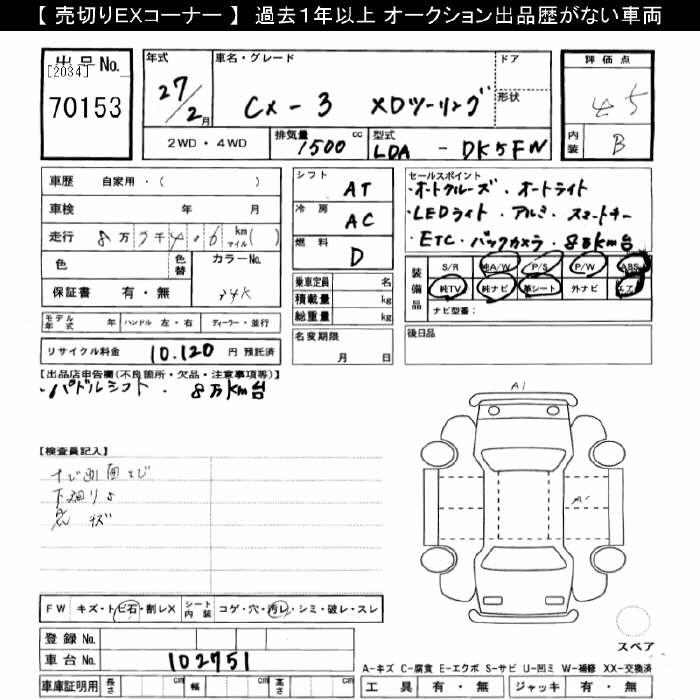 【 売切りEXコーナー 】 過去1年以上 オークション出品歴がない車両
出品No.
[2034]
70153
年式
27/2月
車名・グレード
CX-3 XDツーリング
ドア
形状
評価点
4.5
内装
B
2WD・4WD
排気量 1500 cc
型式 LDA - DK5FW
車歴 自家用・( )
車検 年 月
走行 8万 7千 4.6 km マイル( )
色
色替
カラーNo.
34K
保証書 有・無
モデル年式 年 ハンドル 左・右 ディーラー・並行
リサイクル料金 10.120 円 預託済
シフト AT
冷房 AC
燃料 D
乗車定員 名
積載量 kg
総重量 kg
名変期限
月 日
セールスポイント
・オートクルーズ ・オートライト
・LEDライト ・アルミ ・スマートキー
・ETC ・バックカメラ ・8万km台
装備品
S/R 純A/W P/S P/W ABS
純TV 純ナビ 革シート 外ナビ エア
ナビ型番：
後日品
【出品店申告欄(不良箇所・欠品・注意事項等)】
・パドルシフト ・8万km台
【検査員記入】
ナビ画面とび
下廻りよ
F W キズ・トビ石・割レX
シート内装 コゲ・穴・汚レ・シミ・破レ・スレ
登録No.
車台No. 102751
車庫証明用 長さ cm 幅 cm 高さ cm
A1
A1
スペア
A-キズ C-腐食 E-エクボ S-サビ U-凹ミ W-補修 XX-交換済
工具 有・無 ジャッキ 有・無